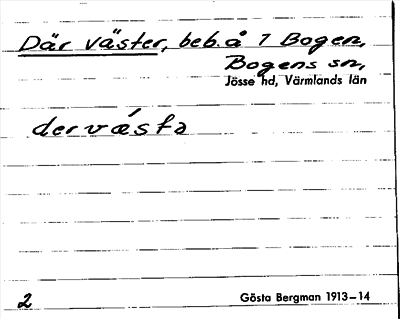 Där väster, beb. å 7 Bogen,
Bogens sn,
Jösse hd, Värmlands län
dervǽstə
2
Gösta Bergman 1913–14